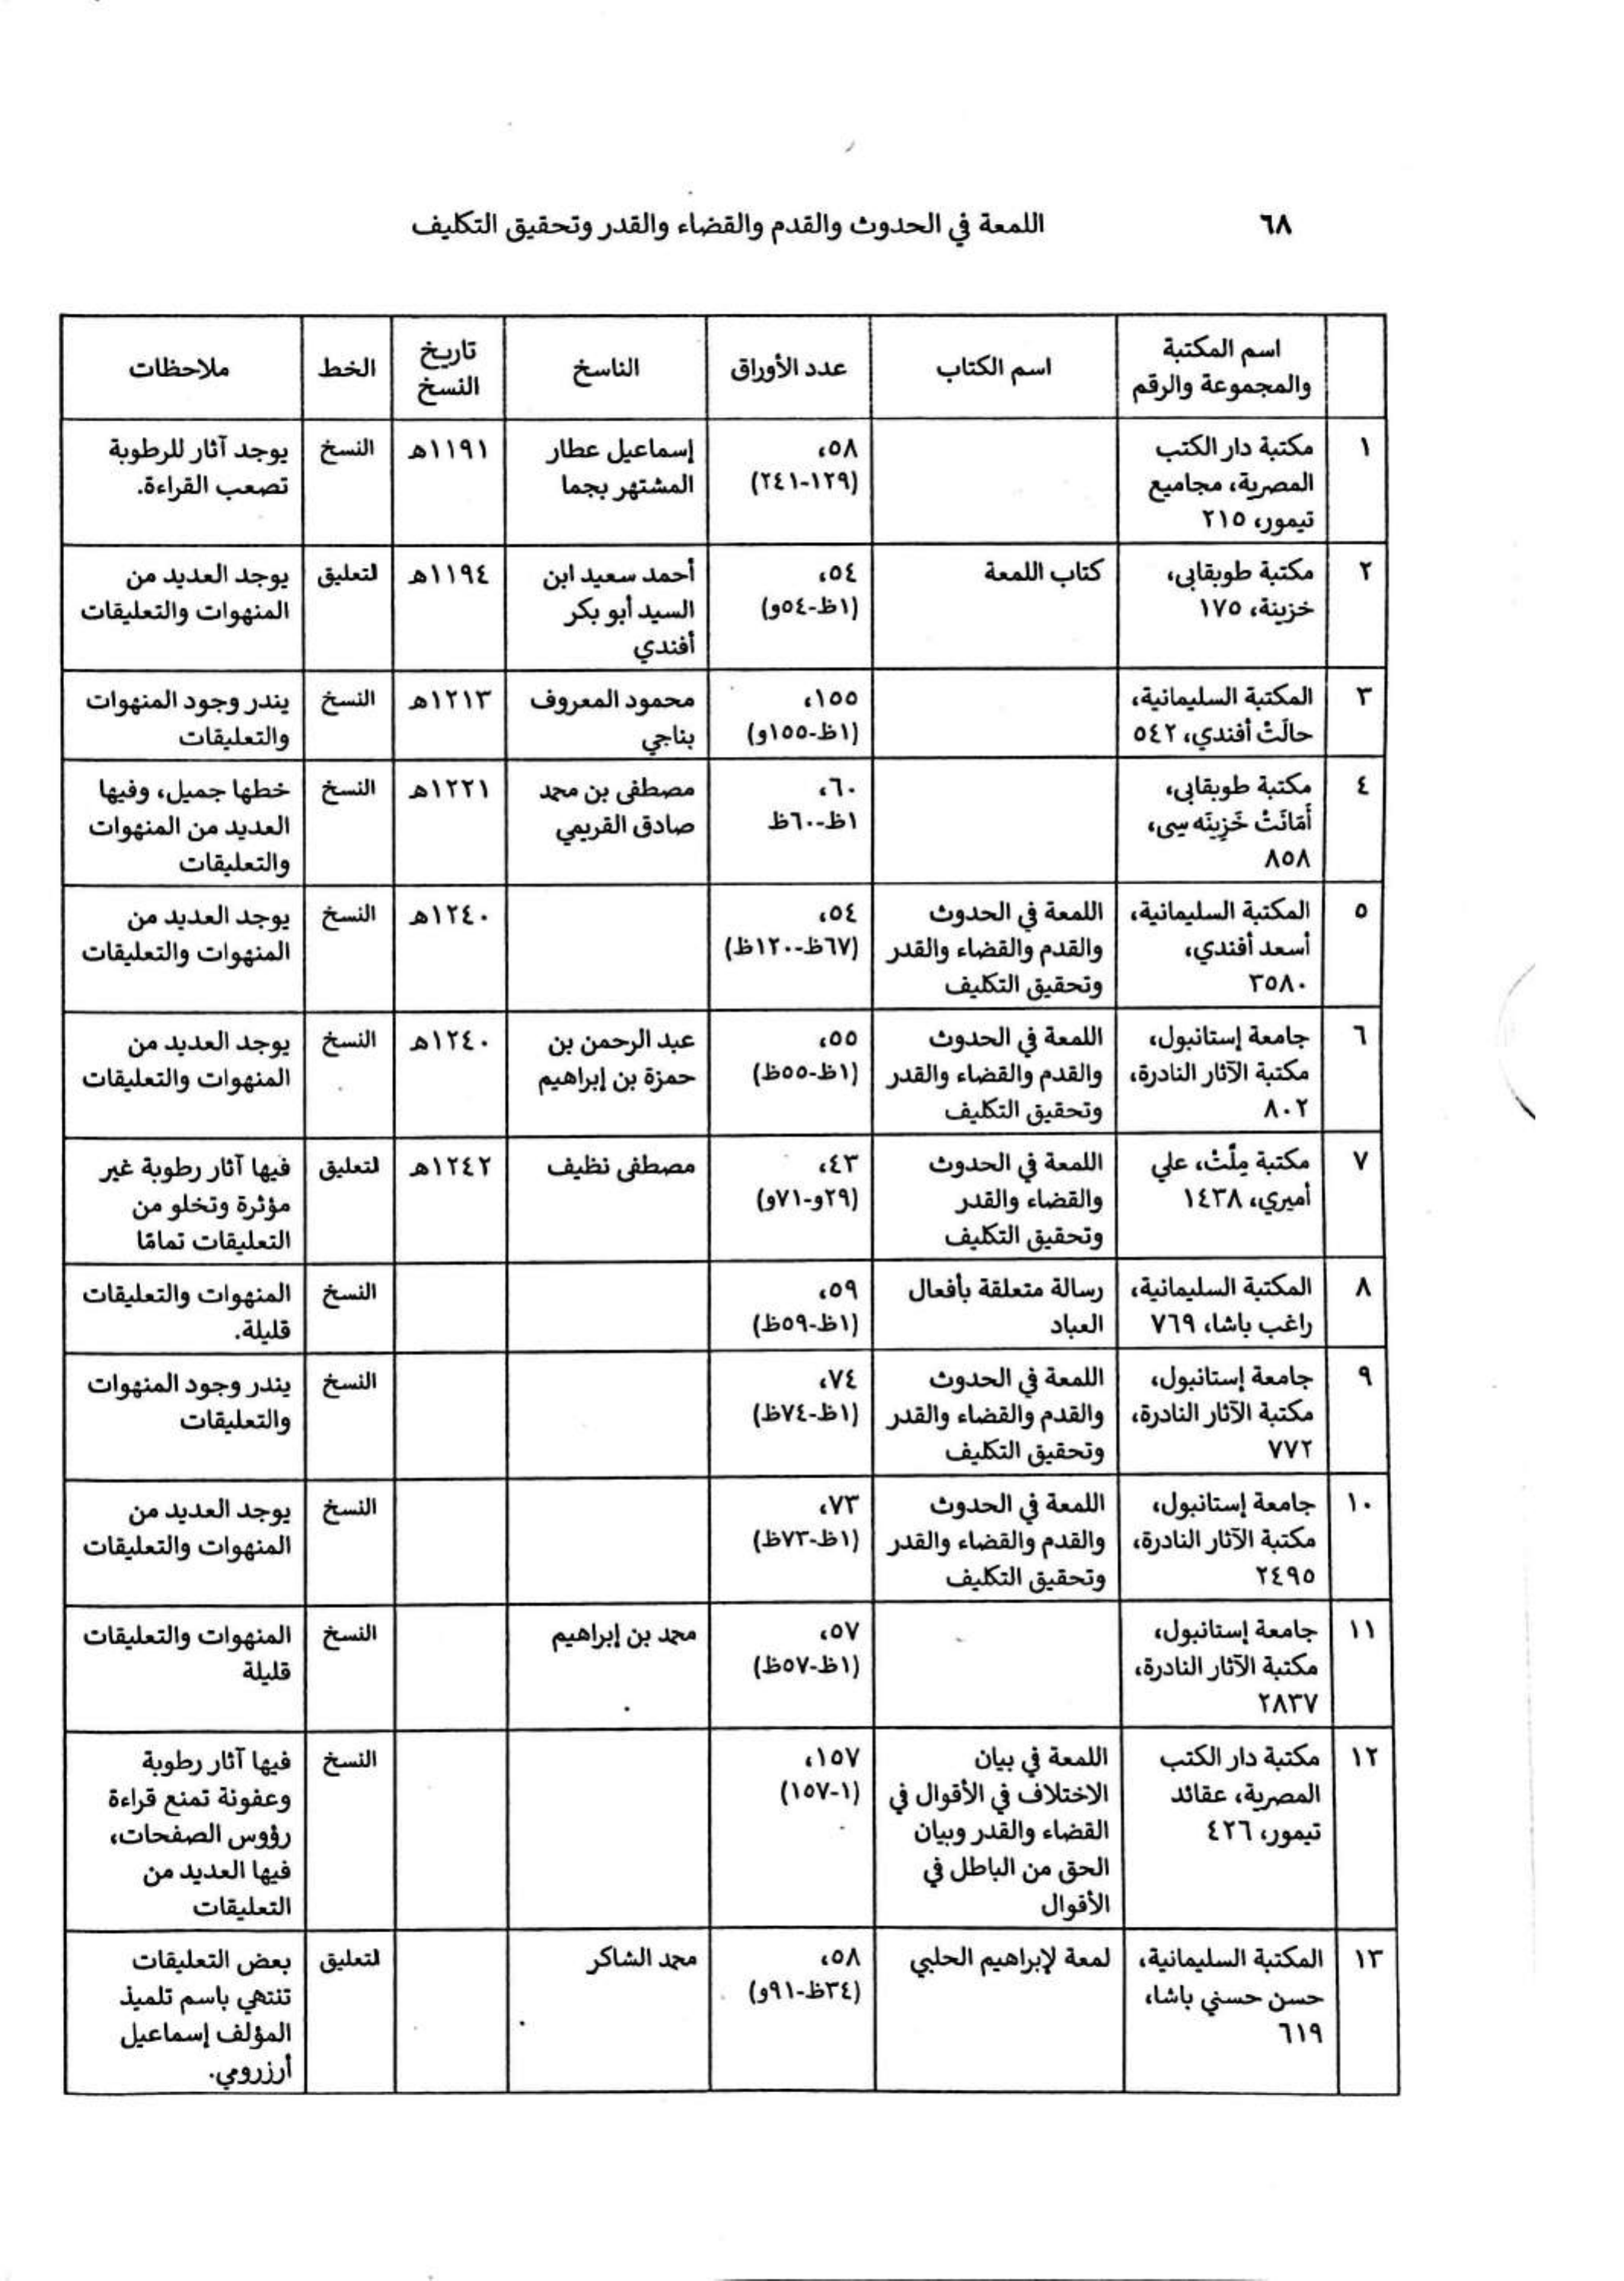 ٦٨
اللمعة في الحدوث والقدم والقضاء والقدر وتحقيق التكليف
اسم المكتبة
والمجموعة والرقم
اسم الكتاب
عدد الأوراق
الناسخ
تاريخ
النسخ
الخط
ملاحظات
١
مكتبة دار الكتب
المصرية، مجاميع
تيمور، ٢١٥
٥٨،
(١٢٩-٢٤١)
إسماعيل عطار
المشتهر بجما
١١٩١هـ
النسخ
يوجد آثار للرطوبة
تصعب القراءة.
٢
مكتبة طوبقابى،
خزينة، ١٧٥
كتاب اللمعة
٥٤،
(١ظ-٥٤و)
أحمد سعيد ابن
السيد أبو بكر
أفندي
١١٩٤هـ
لتعليق
يوجد العديد من
المنهوات والتعليقات
٣
المكتبة السليمانية،
حالَتْ أفندي، ٥٤٢
١٥٥،
(١ظ-١٥٥و)
محمود المعروف
بناجي
١٢١٣هـ
النسخ
يندر وجود المنهوات
والتعليقات
٤
مكتبة طوبقابى،
أَمَانَتْ خَزِينَه سِى،
٨٥٨
٦٠،
١ظ-٦٠ظ
مصطفى بن محمد
صادق القريمي
١٢٢١هـ
النسخ
خطها جميل، وفيها
العديد من المنهوات
والتعليقات
٥
المكتبة السليمانية،
أسعد أفندي،
٣٥٨٠
اللمعة في الحدوث
والقدم والقضاء والقدر
وتحقيق التكليف
٥٤،
(٦٧ظ-١٢٠ظ)
١٢٤٠هـ
النسخ
يوجد العديد من
المنهوات والتعليقات
٦
جامعة إستانبول،
مكتبة الآثار النادرة،
٨٠٢
اللمعة في الحدوث
والقدم والقضاء والقدر
وتحقيق التكليف
٥٥،
(١ظ-٥٥ظ)
عبد الرحمن بن
حمزة بن إبراهيم
١٢٤٠هـ
النسخ
يوجد العديد من
المنهوات والتعليقات
٧
مكتبة مِلَّتْ، علي
أميري، ١٤٣٨
اللمعة في الحدوث
والقضاء والقدر
وتحقيق التكليف
٤٣،
(٢٩و-٧١و)
مصطفى نظيف
١٢٤٢هـ
لتعليق
فيها آثار رطوبة غير
مؤثرة وتخلو من
التعليقات تمامًا
٨
المكتبة السليمانية،
راغب باشا، ٧٦٩
رسالة متعلقة بأفعال
العباد
٥٩،
(١ظ-٥٩ظ)
النسخ
المنهوات والتعليقات
قليلة.
٩
جامعة إستانبول،
مكتبة الآثار النادرة،
٧٧٢
اللمعة في الحدوث
والقدم والقضاء والقدر
وتحقيق التكليف
٧٤،
(١ظ-٧٤ظ)
النسخ
يندر وجود المنهوات
والتعليقات
١٠
جامعة إستانبول،
مكتبة الآثار النادرة،
٢٤٩٥
اللمعة في الحدوث
والقدم والقضاء والقدر
وتحقيق التكليف
٧٣،
(١ظ-٧٣ظ)
النسخ
يوجد العديد من
المنهوات والتعليقات
١١
جامعة إستانبول،
مكتبة الآثار النادرة،
٢٨٣٧
٥٧،
(١ظ-٥٧ظ)
محمد بن إبراهيم
النسخ
المنهوات والتعليقات
قليلة
١٢
مكتبة دار الكتب
المصرية، عقائد
تيمور، ٤٢٦
اللمعة في بيان
الاختلاف في الأقوال في
القضاء والقدر وبيان
الحق من الباطل في
الأقوال
١٥٧،
(١-١٥٧)
النسخ
فيها آثار رطوبة
وعفونة تمنع قراءة
رؤوس الصفحات،
فيها العديد من
التعليقات
١٣
المكتبة السليمانية،
حسن حسني باشا،
٦١٩
لمعة لإبراهيم الحلبي
٥٨،
(٣٤ظ-٩١و)
محمد الشاكر
لتعليق
بعض التعليقات
تنتهي باسم تلميذ
المؤلف إسماعيل
أرزرومي.